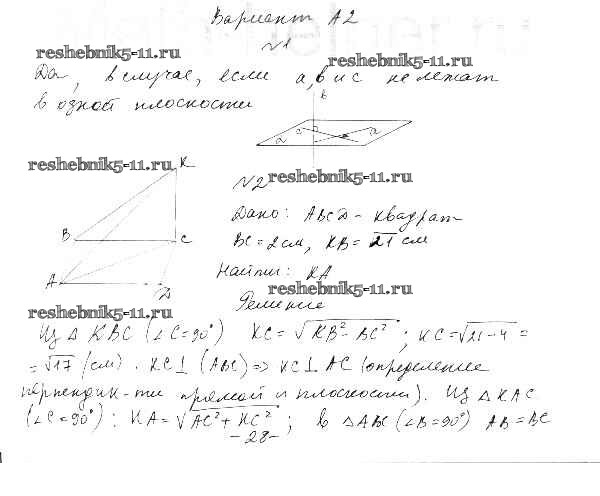 Вариант А2
№1
reshebnik5-11.ru
reshebnik5-11.ru
Да, в случае, если a, b и c не лежат
в одной плоскости
b
c a
α
reshebnik5-11.ru
K
B C
A D
№2
reshebnik5-11.ru
Дано: ABCD - квадрат
BC = 2 см, KB = √21 см
Найти: KA
reshebnik5-11.ru
Решение
reshebnik5-11.ru
Из △ KBC (∠C=90°) KC = √KB² - BC² ; KC = √21-4 =
= √17 (см). KC ⊥ (ABC) => KC ⊥ AC (определение
перпендик-ти прямой и плоскости). Из △ KAC
(∠C=90°): KA = √AC² + KC² ; в △ABC (∠B=90°) AB = BC
-28-